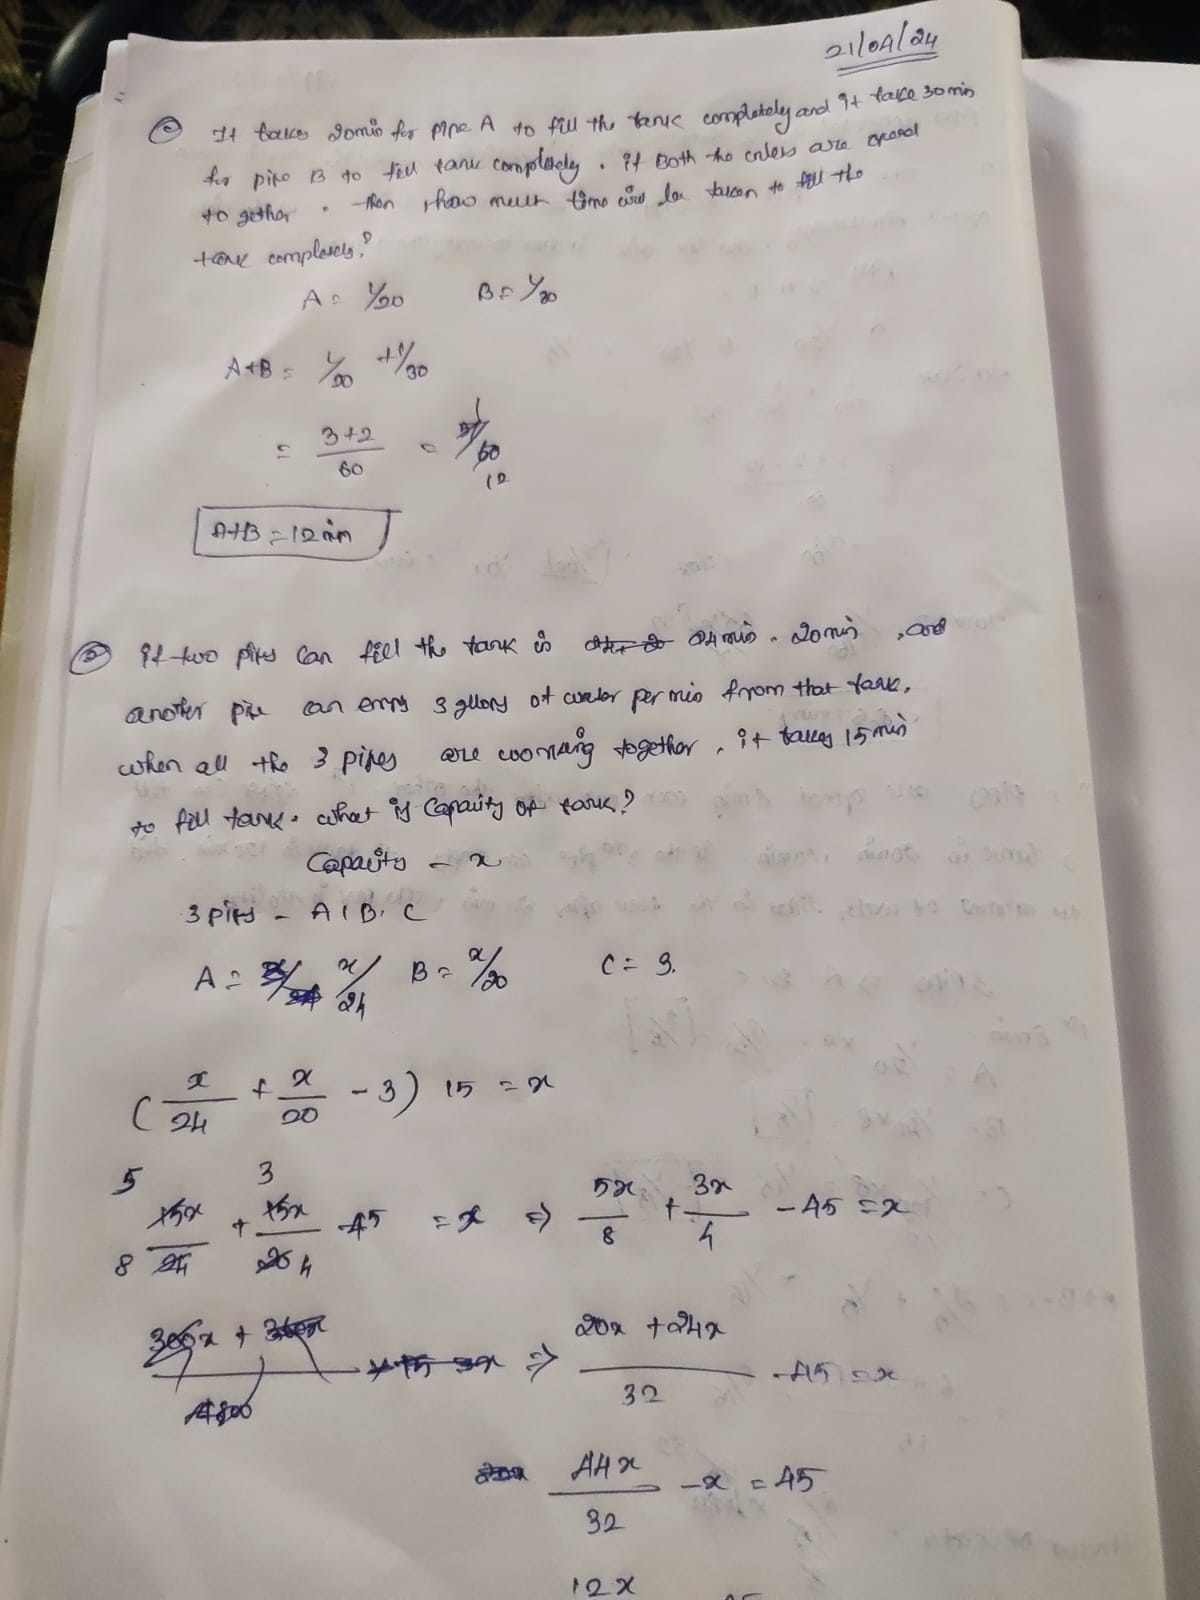 21/04/24
It takes 20min for pipe A to fill the tank completely and it take 30min
for pipe B to fill tank completely. if Both the inlets are opened
to gether. then, how much time will be taken to fill the
tank completely?
A = 1/20 B = 1/30
A+B = 1/20 + 1/30
= 3+2/60 = 5/60 1 12
A+B = 12 min
② if two pipes can fill the tank is 24min. 20min, and
another pipe can empty 3 gllons of water per min from that tank.
when all the 3 pipes are working together, it takes 15min
to fill tank. what is capacity of tank?
Capacity - x
3 pipes - A, B, C
A = x/24 B = x/20 C = 3.
(x/24 + x/20 - 3) 15 = x
5 3
15x/24 + 15x/20 - 45 = x ⇒ 5x/8 + 3x/4 - 45 = x
8 4
⇒ 20x + 24x/32 - 45 = x
44x/32 - x = 45
12x